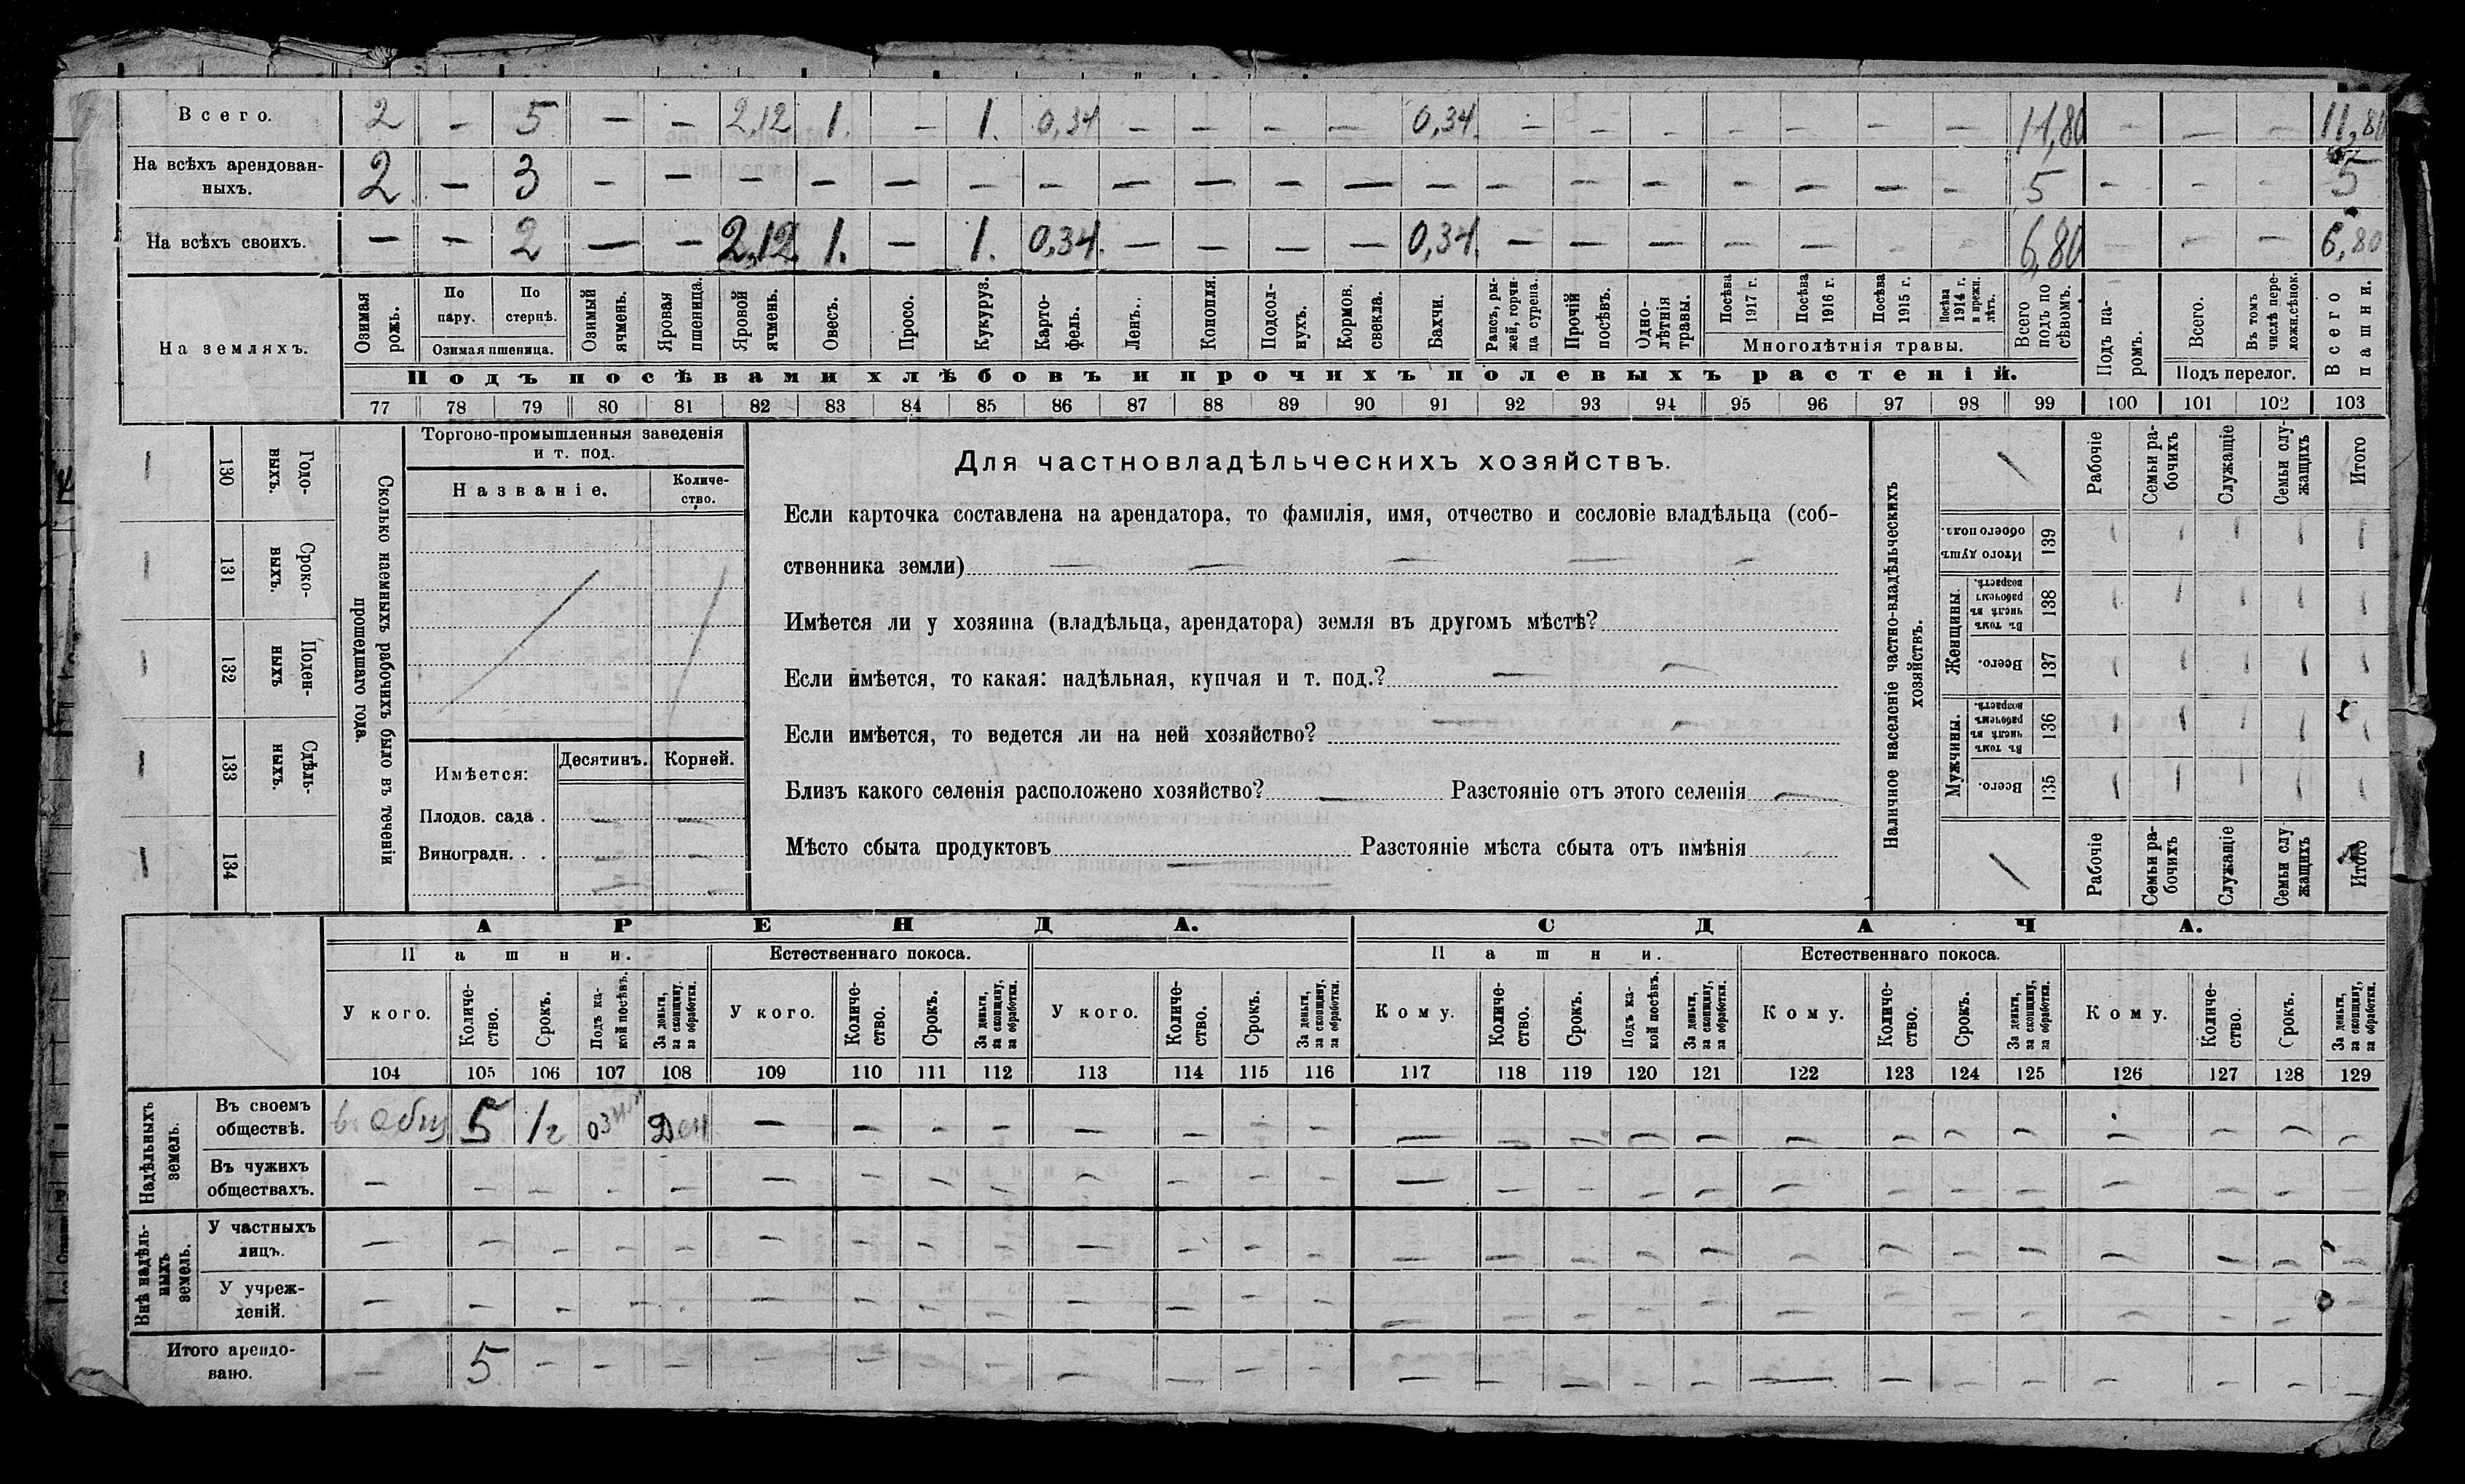 Всего. 2 — 5 — — 2,12 1. — 1. 0,34 — — — — 0,34. — — — — — — — 11,80 — — — 11,80
На всѣхъ арендован-
ныхъ. 2 — 3 — — — — — — — — — — — — — — — — — — — 5 — — — 5
На всѣхъ своихъ. — — 2 — — 2,12 1. — 1. 0,34. — — — — 0,34. — — — — — — — 6,80 — — 6,80
На земляхъ.
Озимая рожь.
По пару.
По стернѣ.
Озимая пшеница.
Озимый ячмень.
Яровая пшеница.
Яровой ячмень.
Овесъ.
Просо.
Кукуруз.
Карто-
фель.
Ленъ.
Конопля.
Подсол-
нухъ.
Кормов. свекла.
Бахчи.
Рапсъ, ры-
жей, горчи-
ца сурепа.
Прочій посѣвъ.
Одно-
лѣтнія травы.
Посѣва 1917 г.
Посѣва 1916 г.
Посѣва 1915 г.
Посѣва 1914 г. и прежн. лѣтъ.
Многолѣтнія травы.
Всего подъ по
сѣвомъ.
Подъ па-
ромъ.
Всего.
Въ томъ числѣ пере-
ложн.сѣнок.
Подъ перелог.
Всего пашни.
Подъ посѣвами хлѣбовъ и прочихъ полевыхъ растеній.
77 78 79 80 81 82 83 84 85 86 87 88 89 90 91 92 93 94 95 96 97 98 99 100 101 102 103
130 Годо-
выхъ.
131 Сроко-
выхъ.
132 Поден-
ныхъ
133 Сдѣль-
ныхъ.
134
Сколько наемныхъ рабочихъ было въ теченіи
прошедшаго года.
Торгово-промышленныя заведенія
и т. под.
Названіе.
Количе-
ство.
Имѣется:
Десятинъ. Корней.
Плодов. сада .
Виноградн. . .
Для частновладѣльческихъ хозяйствъ.
Если карточка составлена на арендатора, то фамилія, имя, отчество и сословіе владѣльца (соб-
ственника земли)
Имѣется ли у хозяина (владѣльца, арендатора) земля въ другомъ мѣстѣ?
Если имѣется, то какая: надѣльная, купчая и т. под.?
Если имѣется, то ведется ли на ней хозяйство?
Близъ какого селенія расположено хозяйство? Разстояніе отъ этого селенія
Мѣсто сбыта продуктовъ Разстояніе мѣста сбыта отъ имѣнія
Наличное населеніе частно-владѣльческихъ
хозяйствъ.
Рабочіе
Семьи ра-
бочихъ
Служащіе
Семьи слу-
жащихъ
Итого
Итого душъ обоего пола. 139
Женщины.
Въ томъ числѣ въ рабочемъ возрастѣ. 138
Всего. 137
Мужчины.
Въ томъ числѣ въ рабочемъ возрастѣ. 136
Всего. 135
Рабочіе
Семьи ра-
бочихъ
Служащіе
Семьи слу-
жащихъ
Итого
АРЕНДА. СДАЧА.
Пашни. Естественнаго покоса. Пашни. Естественнаго покоса.
У кого.
Количе-
ство.
Срокъ.
Подъ ка-
кой посѣвъ.
За деньги, за скопщину, за обработки.
У кого.
Количе-
ство.
Срокъ.
За деньги, за скопщину, за обработки.
У кого.
Количе-
ство.
Срокъ.
За деньги, за скопщину, за обработки.
Кому.
Количе-
ство.
Срокъ.
Подъ ка-
кой посѣвъ.
За деньги, за скопщину, за обработки.
Кому.
Количе-
ство.
Срокъ.
За деньги, за скопщину, за обработки.
Кому.
Количе-
ство.
Срокъ.
За деньги, за скопщину, за обработки.
104 105 106 107 108 109 110 111 112 113 114 115 116 117 118 119 120 121 122 123 124 125 126 127 128 129
Надѣльныхъ
земель.
Въ своемъ
обществѣ. 5 1г озим Ден — — — — — — — — — — — — — — — — — — — — —
Въ чужихъ
обществахъ. — — — — — — — — — — — — — — — — — — — — — — — — — —
Внѣ надѣль-
ныхъ
земель.
У частныхъ
лицъ. — — — — — — — — — — — — — — — — — — — — — — — — — —
У учреж-
деній. — — — — — — — — — — — — — — — — — — — — — — — — — —
Итого арендо-
вано. — 5 — — — — — — — — — — — — — — — — — — — — — — — —